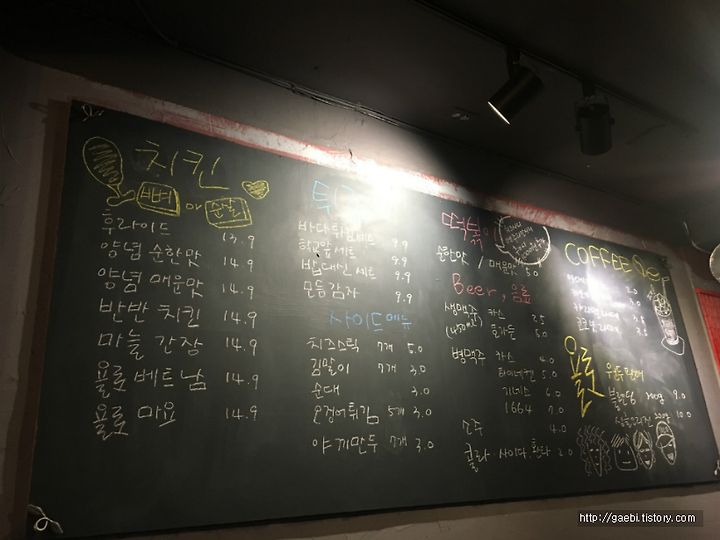 치킨
뼈 or 순살
후라이드 13.9
양념 순한맛 14.9
양념 매운맛 14.9
반반 치킨 14.9
마늘 간장 14.9
욜로 베트남 14.9
욜로 마요 14.9
바다튀김세트 9.9
학교앞세트 9.9
밥대신 세트 9.9
모듬감자 9.9
사이드메뉴
치즈스틱 7개 5.0
김말이 7개 3.0
순대 3.0
오징어튀김 5개 3.0
야끼만두 7개 3.0
떡볶이
순한맛 / 매운맛 5.0
Beer, 음료
생맥주 카스 2.5
호가든 5.0
병맥주 카스 4.0
하이네켄 5.0
기네스 6.0
1664 7.0
소주 4.0
콜라·사이다·환타 2.0
COFFEE
2.0
3.0
3.5
3.5
욜로
블랜딩 200g 9.0
싱글오리진 200g 10.0
http://gaebi.tistory.com